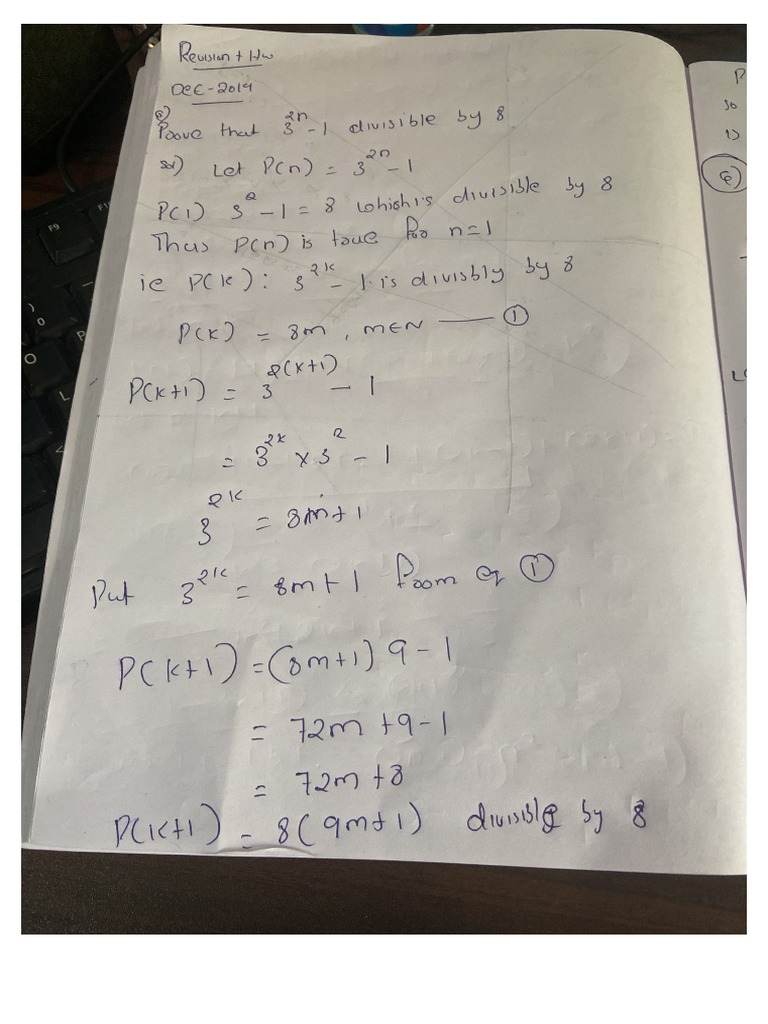 Revision + Hw
DEC-2019
e)
Proove that 3^2n - 1 divisible by 8
sol) Let P(n) = 3^2n - 1
P(1) 3^2 - 1 = 8 which is divisible by 8
Thus P(n) is true for n=1
ie P(k) : 3^2k - 1 is divisbly by 8
P(k) = 8m , m∈N —— ①
P(k+1) = 3^2(k+1) - 1
= 3^2k × 3^2 - 1
3^2k = 8m+1
Put 3^2k = 8m+1 from eq ①
P(k+1) = (8m+1) 9 - 1
= 72m + 9 - 1
= 72m + 8
P(k+1) = 8(9m+1) divisible by 8
F9
F10
O
P
L